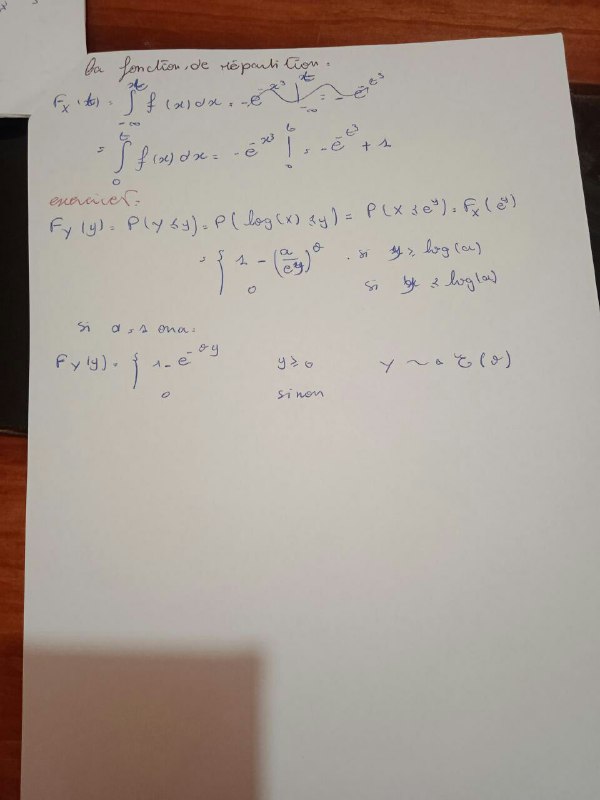 La fonction de répartition :
F_X(t) = ∫_{-∞}^{t} f(x)dx = -e^{-x³} |_{-∞}^{t} = -e^{-t³}
= ∫_0^t f(x)dx = -e^{-x³} |_0^t = -e^{-t³} + 1
exercice 1 :
F_Y(y) = P(Y ≤ y) = P(log(X) ≤ y) = P(X ≤ e^y) = F_X(e^y)
= { 1 - (a/e^y)^θ . si y ≥ log(a)
0 si y ≤ log(a)
si a = 1 on a :
F_Y(y) = { 1 - e^{-θy} y ≥ 0 Y ~ ε(θ)
0 sinon